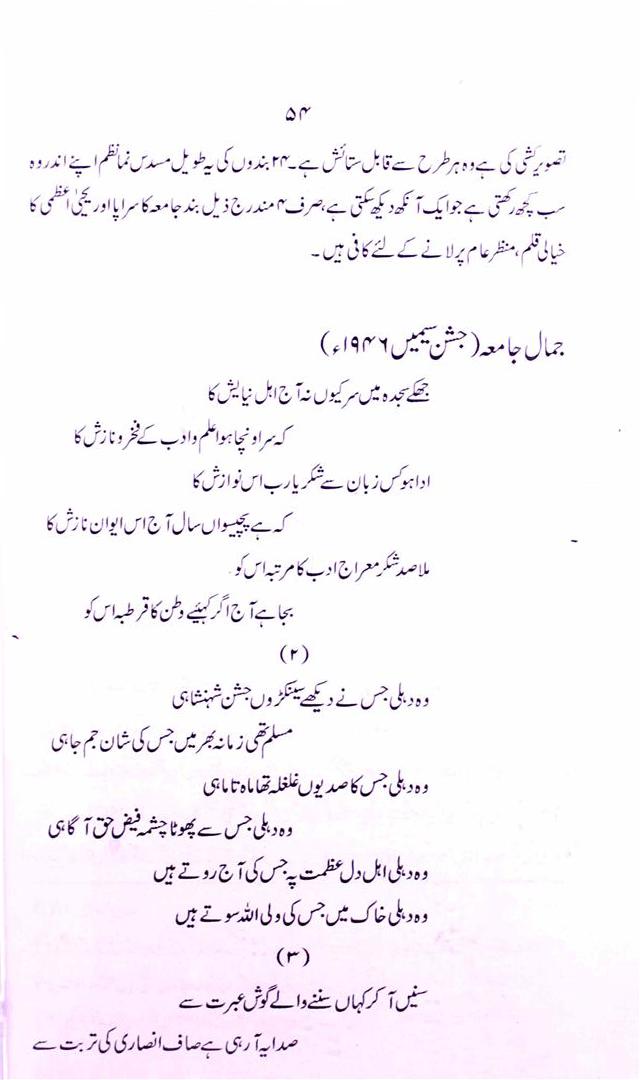 ۵۴
تصویر کشی کی ہے وہ ہر طرح سے قابل ستائش ہے۔ ۲۴ بندوں کی یہ طویل مسدس نما نظم اپنے اندر وہ
سب کچھ رکھتی ہے جو ایک آنکھ دیکھ سکتی ہے، صرف ۴ مندرج ذیل بند جامعہ کا سراپا اور یحییٰ اعظمی کا
خیالی قلم، منظر عام پر لانے کے لئے کافی ہیں۔
جمال جامعہ (جشن سیمیں ۱۹۴۶ء)
جھکے سجدہ میں سر کیوں نہ آج اہل نیایش کا
کہ سر اونچا ہوا علم و ادب کے فخر و نازش کا
ادا ہو کس زبان سے شکر یارب اس نوازش کا
کہ ہے پچیسواں سال آج اس ایوان نازش کا
ملا صد شکر معراج ادب کا مرتبہ اس کو
بجا ہے آج اگر کہئیے وطن کا قرطبہ اس کو
(۲)
وہ دہلی جس نے دیکھے سینکڑوں جشن شہنشاہی
مسلم تھی زمانہ بھر میں جس کی شان جم جاہی
وہ دہلی جس کا صدیوں غلغلہ تھا ماہ تا ماہی
وہ دہلی جس سے پھوٹا چشمہ فیض حق آگاہی
وہ دہلی اہل دل عظمت پہ جس کی آج روتے ہیں
وہ دہلی خاک میں جس کی ولی اللہ سوتے ہیں
(۳)
سنیں آ کر کہاں سننے والے گوش عبرت سے
صدا یہ آ رہی ہے صاف انصاری کی تربت سے